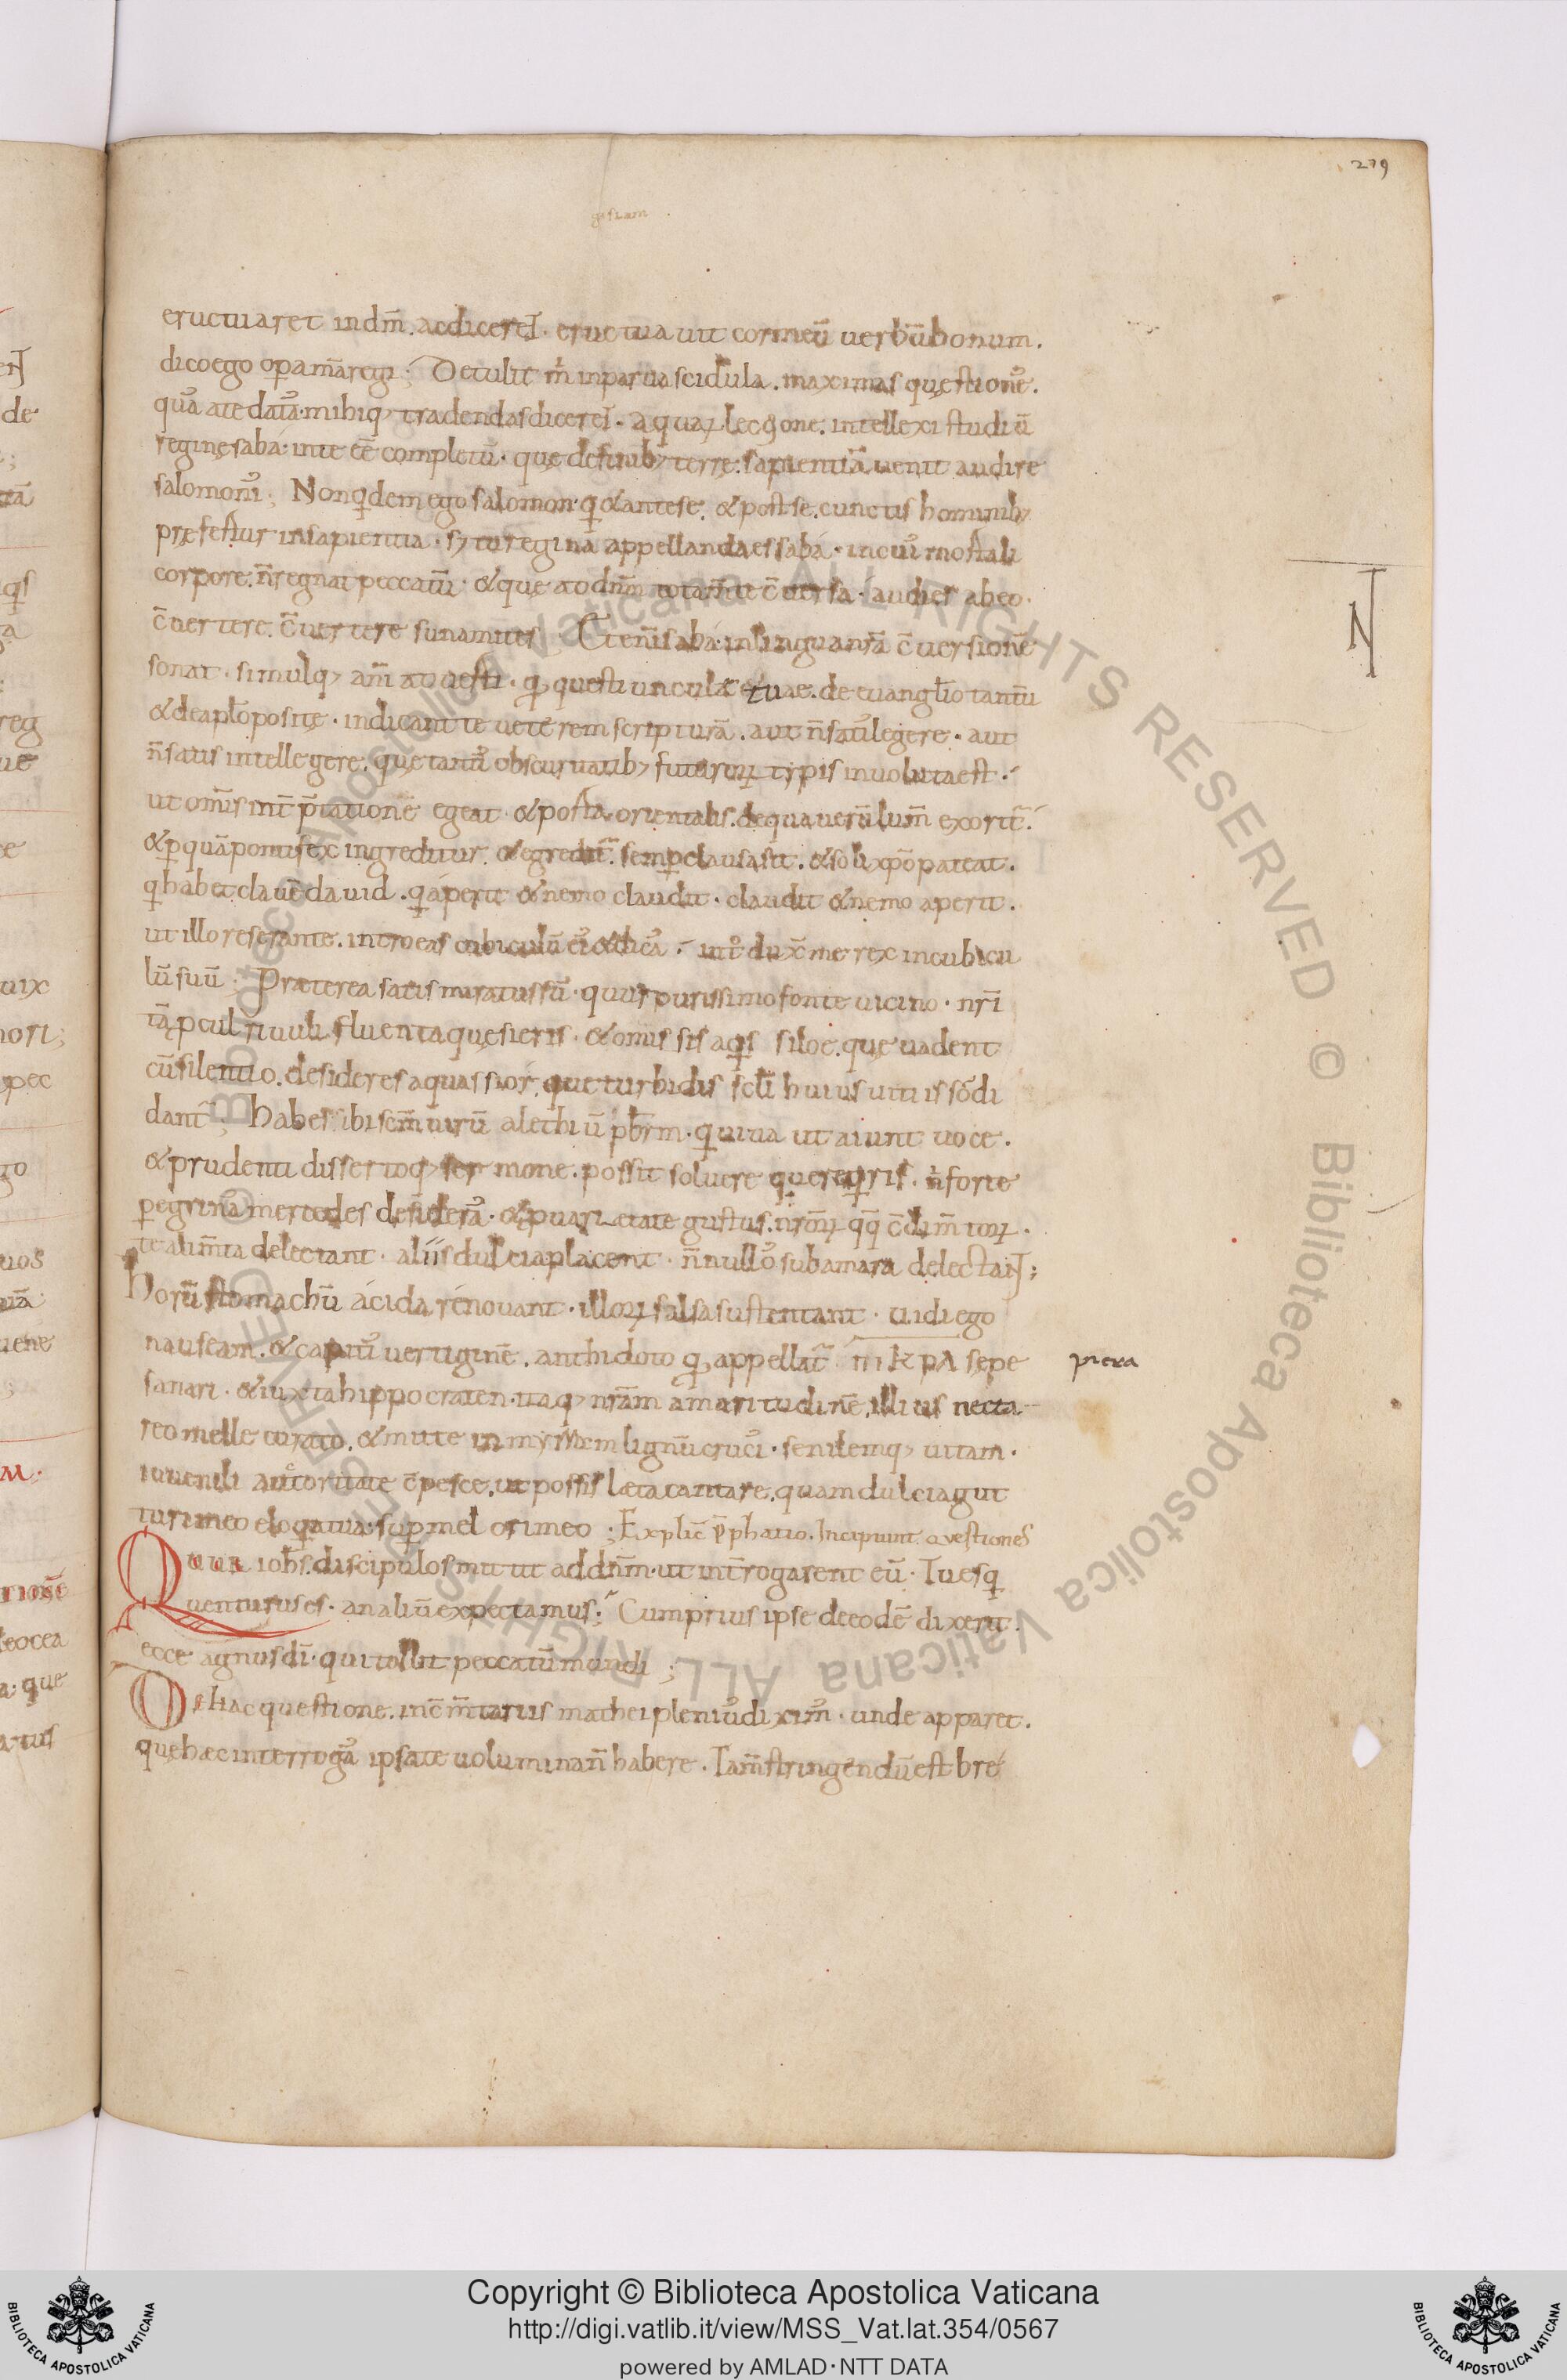 279
eructuaret in dm̄. ac diceret. eructauit cor meū uerbū bonum.
dico ego opa m̄a regi; Detulit m̄ in parua scidula. maximas questiones.
regine saba. in te ēē completū. que de finib; terre. sapientiā uenit audire
salomonis; Non qidem ego salomon. qi & ante se. & post se. cunctis hominib;
prefertur in sapientia. s; tu regina appellanda es saba. in cuius mortali
corpore. n̄ regnat peccatū. & que ad dn̄m tota m̄te c̄uersa. audies ab eo.
c̄uertere. c̄uertere sunamites; Etenī saba. in lingua nrā c̄uersionē
sonat. simulq; am̄aduerti. qd questiunculae tuae. de euangł̄io tantū
& de apło posite. indicant te ueterem scripturā. aut n̄ satis legere. aut
n̄ satis intellegere. que tantis obscuritatib; futuroꝝ typis inuoluta est.
ut omīs int̄p̄tationē egeat. & porta orientalis. de qua uerū lum̄ exorit̄.
& p quā pontifex ingreditur. & egredit̄. semp clausa sit. & soli xp̄o pateat.
qi habet clauē dauid. qi aperit & nemo claudit. claudit & nemo aperit.
ut illo reserante. introeas cubiculū eius & dicas. introdux̄ me rex in cubicu
lū suū; Praeterea satis miratus sū. quur purissimo fonte uicino. nr̄i
tā pcul riuuli fluenta quesieris. & omissis aqis siloe. que uadent
cū silentio. desideres aquas sior. que turbidis sc̄li huius uitiis sordi
dant̄; Habes ibi sc̄m uirū alethiū pbr̄m. qi uiua ut aiunt uoce.
& prudenti disertoq; sermone. possit soluere que reqiris. n̄ forte
pegrinas mercedes desideras. & p uarietate gustus. nroꝝ qq̄ c̄dim̄toꝝ.
te alim̄ta delectant. aliis dulcia placent. n̄nullos subamara delectant;
Horū stomachū acida renouant. illoꝝ salsa sustentant. uidi ego
nauseam. & capitis uertiginē. anthidoto qd appellat̄ ΠΙΚΡΑ sepe
picra
sanari. & iuxta hippocraten. itaq; nrām amaritudinē. illius necta
reo melle curato. & mitte in myrram lignū crucis. senilemq; uitam.
iuuenili auctoritate c̄pesce. ut possis laeta cantare. quam dulcia gut
turi meo eloqia tua. sup mel ori meo; Explic̄ p̄phatio. Incipiunt questiones
Quur iohs. discipulos mittit ad dn̄m. ut int̄rogarent eū. Tu es qi
uenturus es. an aliū expectamus; Cum prius ipse de eodē dixerit.
ecce agnus dī. qui tollit peccatū mundi;
De hac questione. in c̄m̄tariis mathei plenius diximꝰ. unde apparet.
que haec interrogas ipsa te uolumina n̄ habere. Tam̄ stringendū est bre
Copyright © Biblioteca Apostolica Vaticana
http://digi.vatlib.it/view/MSS_Vat.lat.354/0567
powered by AMLAD·NTT DATA
BIBLIOTECA APOSTOLICA VATICANA
BIBLIOTECA APOSTOLICA VATICANA